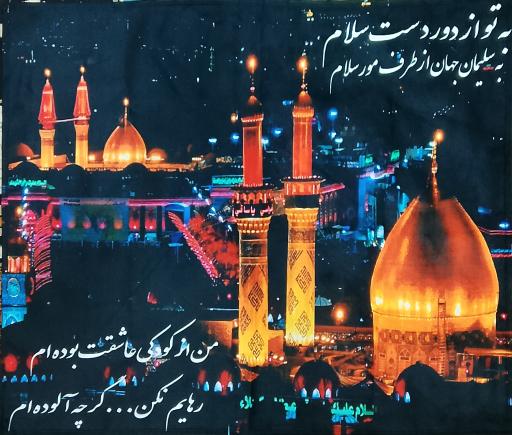 به تو از دور دست سلام
به سلیمان جهان از طرف مور سلام
من از کودکی عاشقت بوده ام
رهایم نکن... گرچه آلوده ام